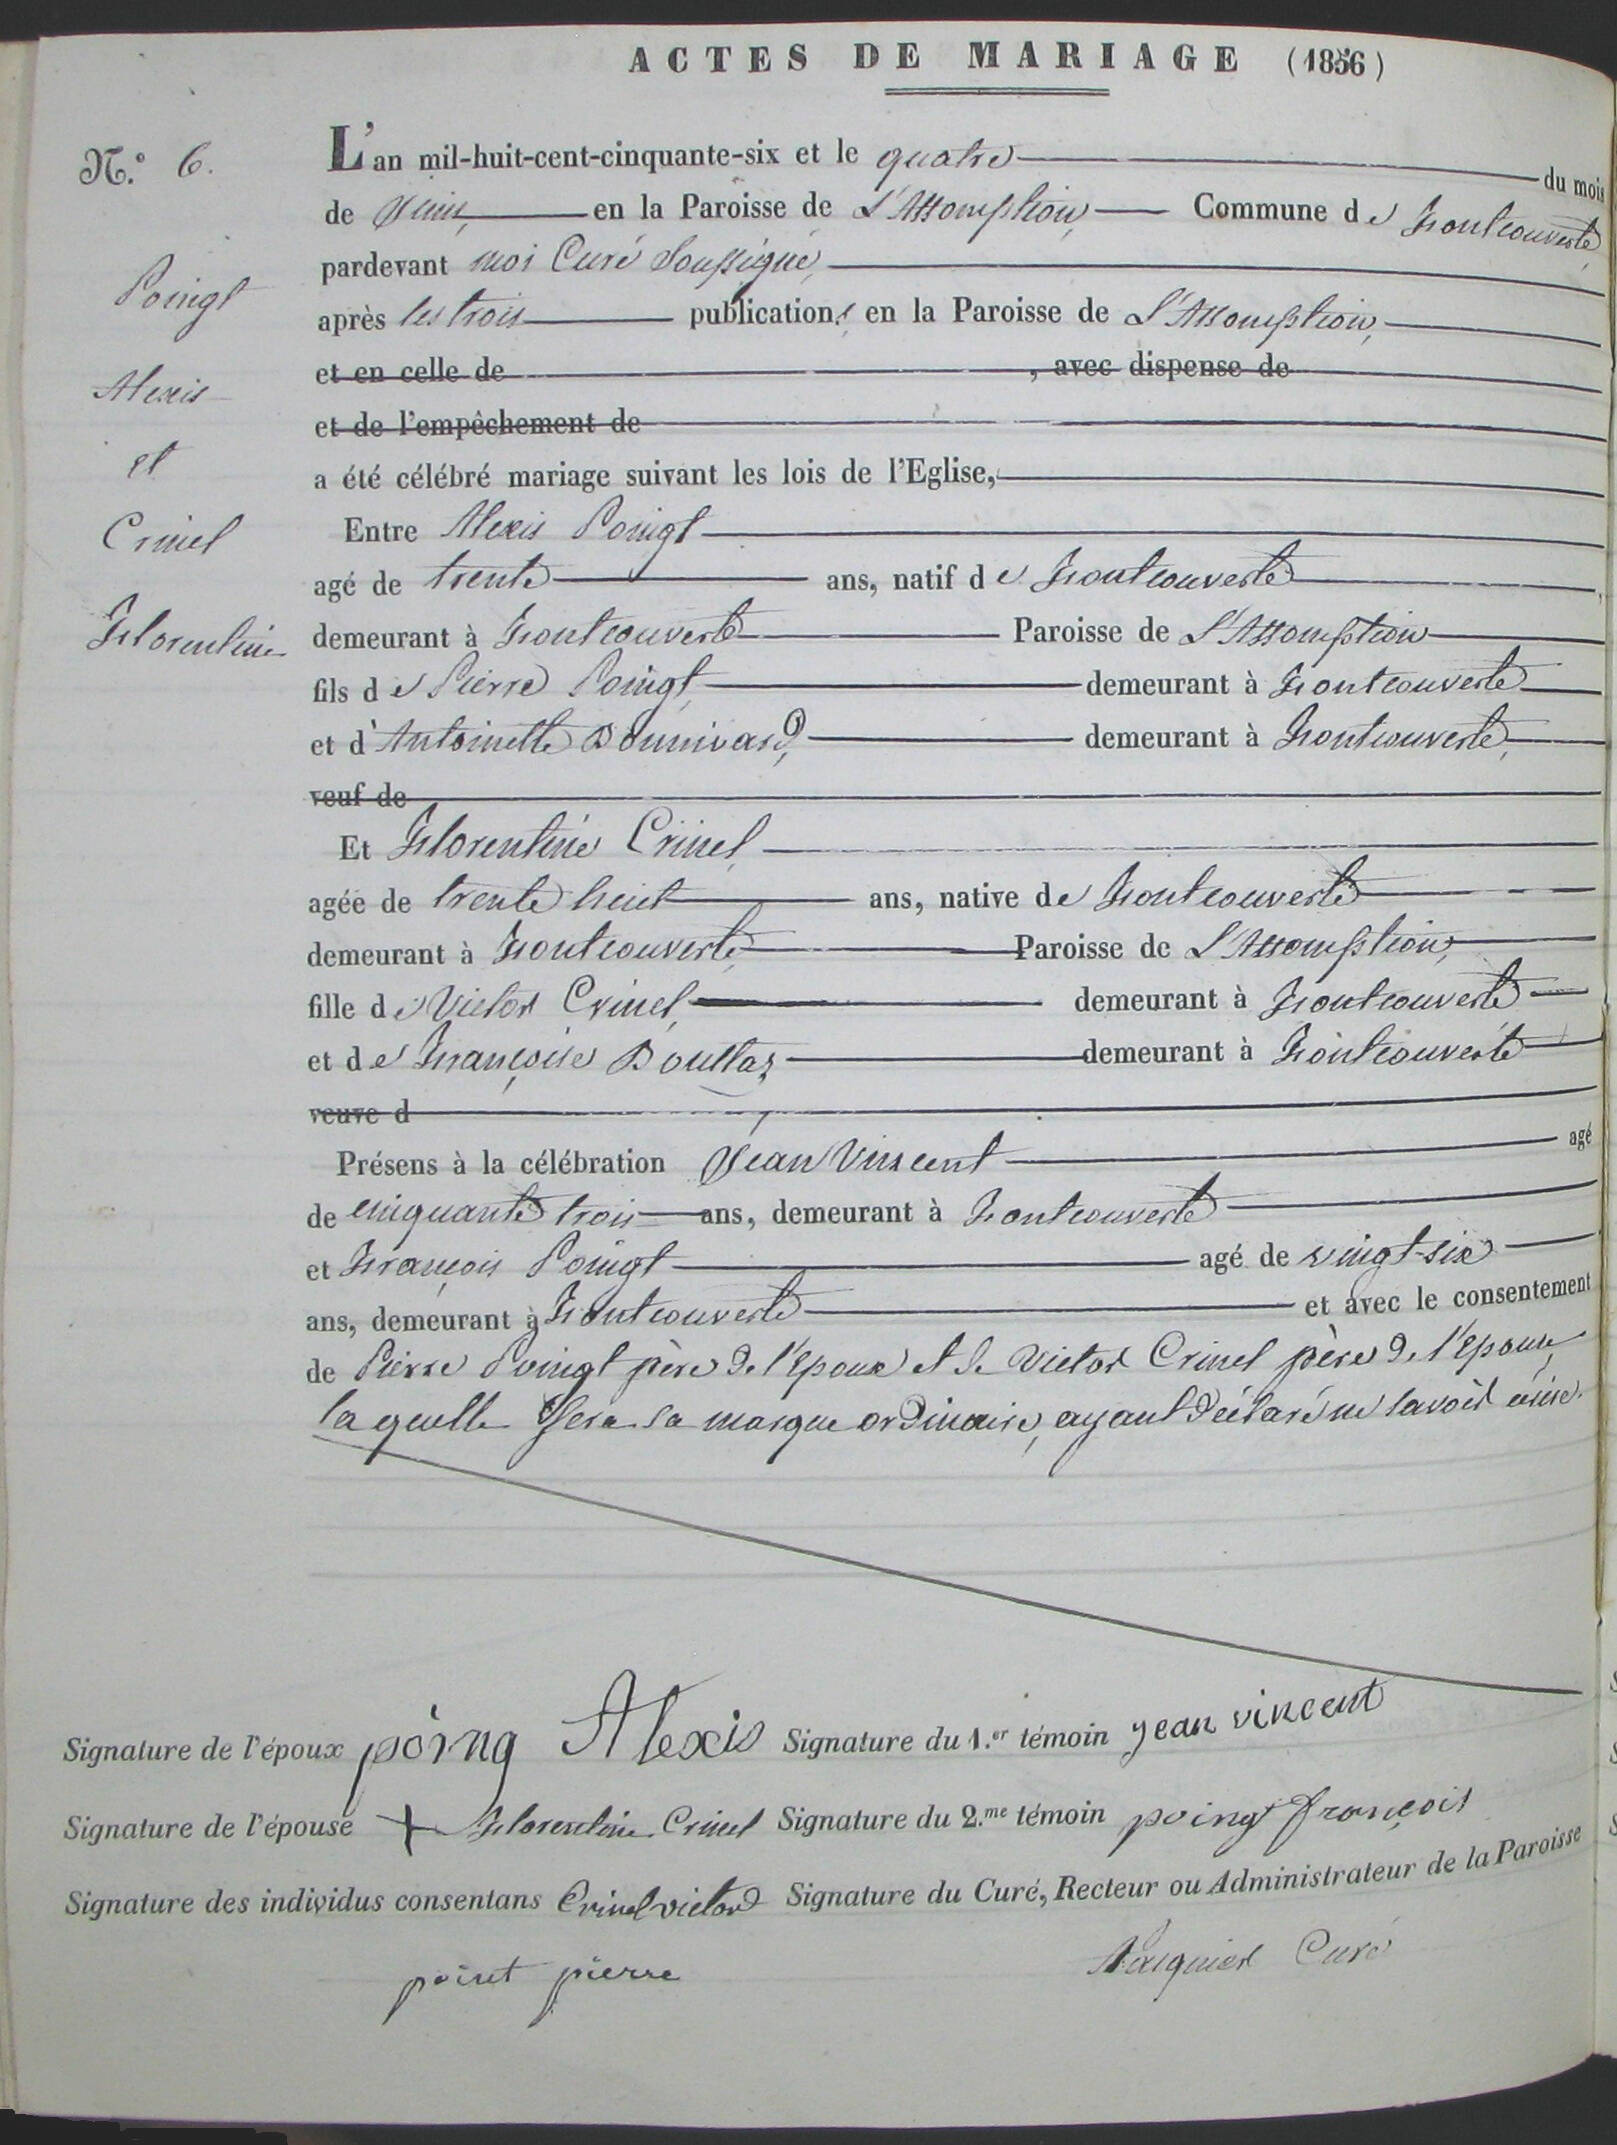 ACTES DE MARIAGE (1856)
N.º 6.
L'an mil-huit-cent-cinquante-six et le quatre du mois
de Juin, en la Paroisse de L'Assomption, Commune de Fontcouverte,
pardevant moi Curé soussigné,
après les trois publications en la Paroisse de L'Assomption,
et en celle de , avec dispense de
et de l'empêchement de
a été célébré mariage suivant les lois de l'Eglise,
Poingt
Alexis
et
Crinel
Florentine
Entre Alexis Poingt
agé de trente ans, natif de Fontcouverte
demeurant à Fontcouverte Paroisse de L'Assomption
fils de Pierre Poingt, demeurant à Fontcouverte
et d'Antoinette Bonnivard, demeurant à Fontcouverte,
veuf de
Et Florentine Crinel,
agée de trente huit ans, native de Fontcouverte
demeurant à Fontcouverte, Paroisse de L'Assomption,
fille de Victor Crinel, demeurant à Fontcouverte
et de Françoise Boullaz, demeurant à Fontcouverte
veuve d
Présens à la célébration Jean Vincent agé
de cinquante trois ans, demeurant à Fontcouverte
et François Poingt agé de vingt-six
ans, demeurant à Fontcouverte et avec le consentement
de Pierre Poingt père de l'Epoux et de Victor Crinel père de l'Epouse,
la quelle fera sa marque ordinaire, ayant déclaré ne savoir écrire.
Signature de l'époux poing Alexis Signature du 1.er témoin jean vincent
Signature de l'épouse + Florentine Crinel Signature du 2.me témoin poingt françois
Signature des individus consentans Crinel victor Signature du Curé, Recteur ou Administrateur de la Paroisse
point pierre Curé